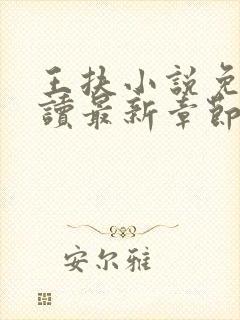 王扶小說免
讀最新章節
安尔雅